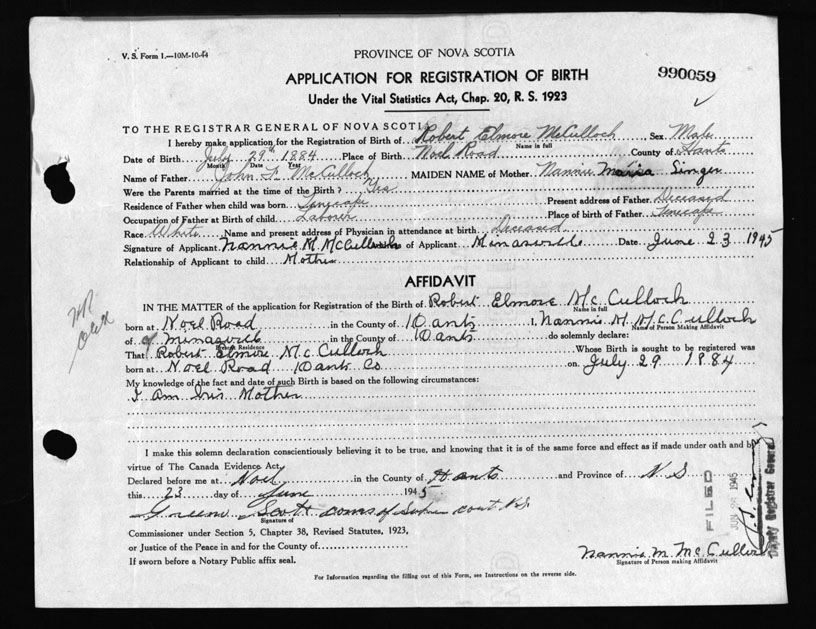 V. S. Form 1.—10M-10-44
PROVINCE OF NOVA SCOTIA
APPLICATION FOR REGISTRATION OF BIRTH
990059
Under the Vital Statistics Act, Chap. 20, R. S. 1923
TO THE REGISTRAR GENERAL OF NOVA SCOTIA
I hereby make application for the Registration of Birth of Robert Elmore McCulloch Sex Male
Name in full
Date of Birth July 29th 1884 Place of Birth Noel Road County of Hants
Month Date Year
Name of Father John F. McCulloch MAIDEN NAME of Mother Nannie Maria Singer
Were the Parents married at the time of the Birth? Yes
Residence of Father when child was born Tenecape Present address of Father Deceased
Occupation of Father at Birth of child Laborer Place of birth of Father Tenecape
Race White Name and present address of Physician in attendance at birth Deceased
Signature of Applicant Nannie M McCulloch of Applicant Minasville Date June 23 1945
Relationship of Applicant to child Mother
AFFIDAVIT
IN THE MATTER of the application for Registration of the Birth of Robert Elmore Mc Culloch
Name in full
born at Noel Road in the County of Hants I, Nannie M. McCulloch
Name of Person Making Affidavit
of Minasville in the County of Hants do solemnly declare:
Present Residence
That Robert Elmore McCulloch Whose Birth is sought to be registered was
born at Noel Road Hants Co on July 29 1884
My knowledge of the fact and date of such Birth is based on the following circumstances:
I Am his Mother
I make this solemn declaration conscientiously believing it to be true, and knowing that it is of the same force and effect as if made under oath and by
virtue of The Canada Evidence Act.
Declared before me at Noel in the County of Hants and Province of N S
this 23 day of June 1945
Scott
Signature of
Commissioner under Section 5, Chapter 38, Revised Statutes, 1923,
or Justice of the Peace in and for the County of
If sworn before a Notary Public affix seal.
Nannie M. McCulloch
Signature of Person making Affidavit
For Information regarding the filling out of this Form, see Instructions on the reverse side.
FILED
1945
Deputy Registrar General